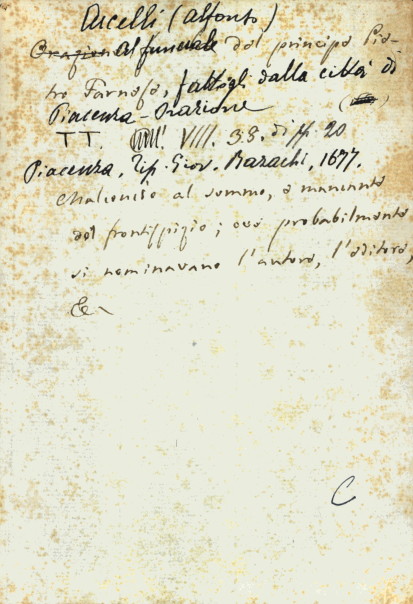 Arcelli (Alfonso)
Orazion Al funerale del principe Pie-
tro Farnese, fattogli dalla città di
Piacenza - Orazione
TT. VIII. 33. di ff 20
Piacenza, Tip. Giov. Bazachi, 1677.
Malconcio al sommo, e mancante
del frontispizio; ove probabilmente
si nominavano l'autore, l'editore,
&c
C